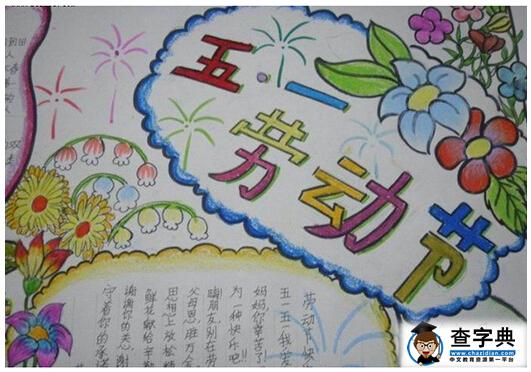 五·一
劳动节
劳动节快
五一五一我爱
妈妈你辛苦了
为一种快乐吧!!
朋友别在劳
父母恩
思想上放松
鲜花献给辛勤
谢谢你的关
守着你的承诺
查字典
www.chazidian.com
中文教育资源第一平台